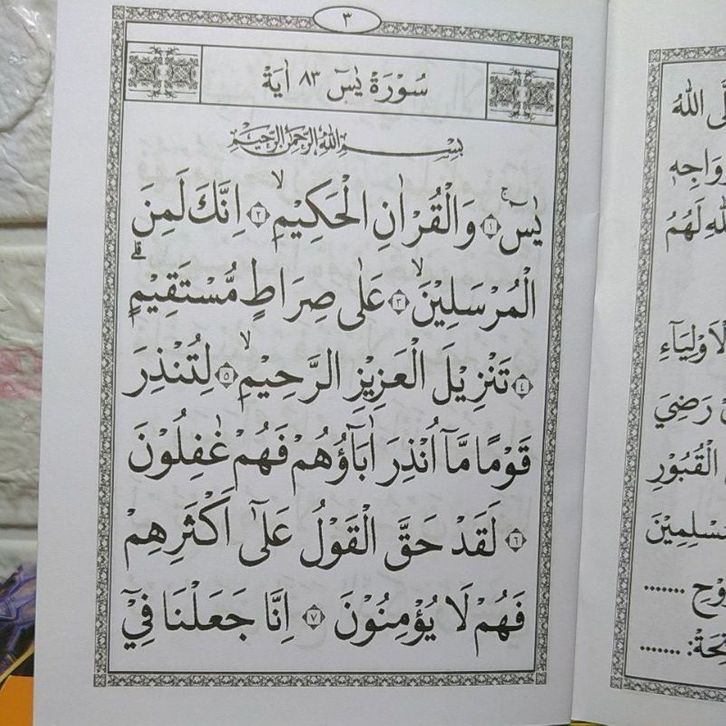 ٣
سُوْرَةْ يٰسٓ ٨٣ اٰيَةْ
بِسْمِ اللهِ الرَّحْمٰنِ الرَّحِيْمِ
يٰسۤ ۚ ۝١ وَالْقُرْاٰنِ الْحَكِيْمِۙ ۝٢ اِنَّكَ لَمِنَ
الْمُرْسَلِيْنَۙ ۝٣ عَلٰى صِرَاطٍ مُّسْتَقِيْمٍۗ
۝٤ تَنْزِيْلَ الْعَزِيْزِ الرَّحِيْمِۙ ۝٥ لِتُنْذِرَ
قَوْمًا مَّآ اُنْذِرَ اٰبَاۤؤُهُمْ فَهُمْ غٰفِلُوْنَ
۝٦ لَقَدْ حَقَّ الْقَوْلُ عَلٰٓى اَكْثَرِهِمْ
فَهُمْ لَا يُؤْمِنُوْنَ ۝٧ اِنَّا جَعَلْنَا فِيْٓ
اللهُ
الْاَوْلِيَآءِ
رَضِيَ
الْقُبُوْرِ